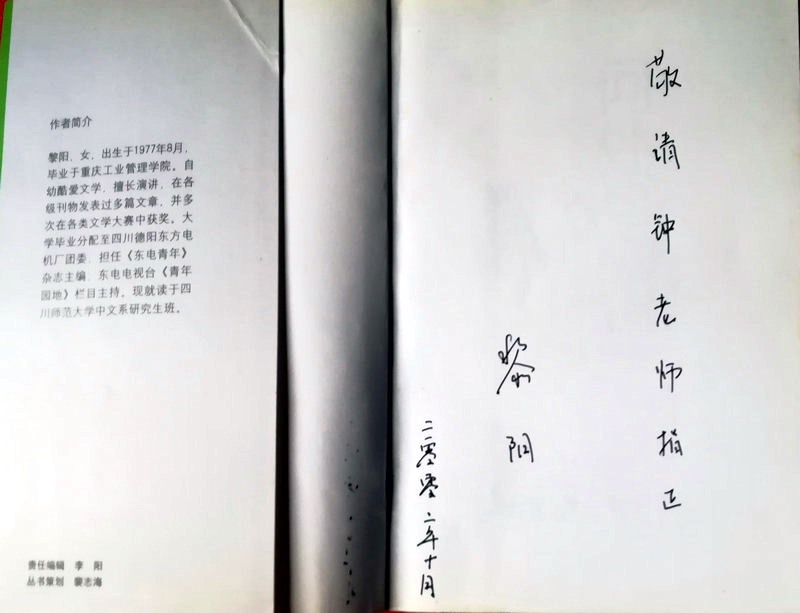 作者简介
黎阳，女，出生于1977年8月，
毕业于重庆工业管理学院。自
幼酷爱文学，擅长演讲，在各
级刊物发表过多篇文章，并多
次在各类文学大赛中获奖。大
学毕业分配至四川德阳东方电
机厂团委，担任《东电青年》
杂志主编，东电电视台《青年
园地》栏目主持。现就读于四
川师范大学中文系研究生班。
责任编辑 李 阳
丛书策划 裴志海
敬请钟老师指正
黎阳
二零零二年十月